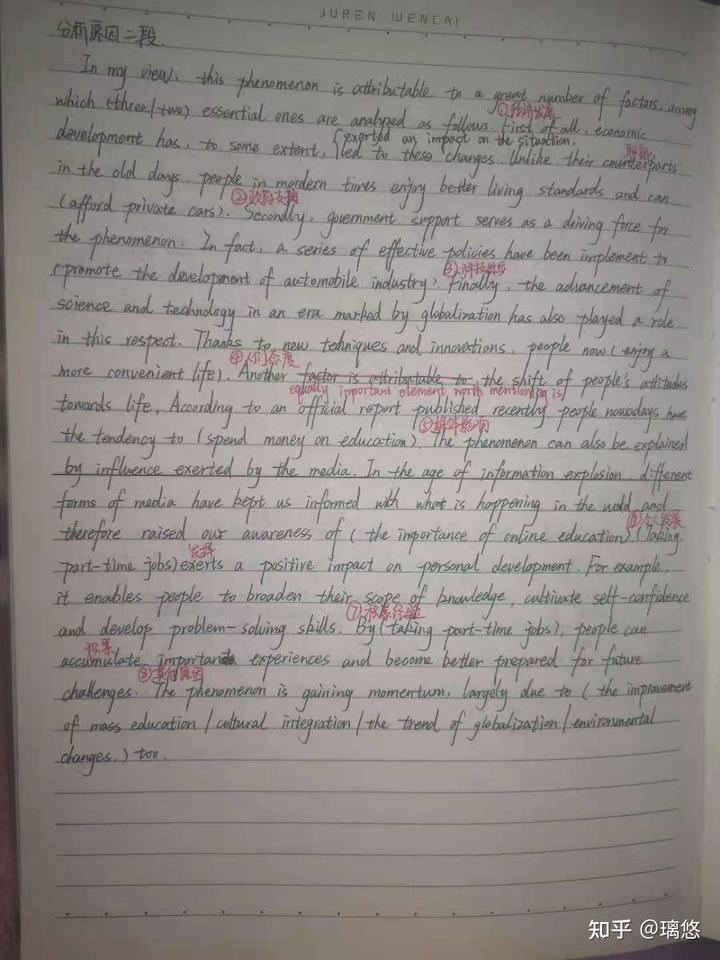 JUREN WENCAI
分析原因二段.
In my view, this phenomenon is attributable to a great number of factors, among
①经济发展
which (three/two) essential ones are analyzed as follows. First of all, economic
{exerted an impact on the situation.
development has, to some extent, led to these changes. Unlike their counterparts
in the old days, people in mordern times enjoy better living standards and can
②政府支持
(afford private cars). Secondly, government support serves as a driving force for
the phenomenon. In fact, a series of effective policies have been implement to
③科技进步
(promote the development of automobile industry). Finally, the advancement of
science and technology in an era marked by globalization has also played a role
in this respect. Thanks to new techniques and innovations, people now (enjoy a
④人们态度
more convenient life). Another factor is attributable to the shift of people's attitudes
equally important element worth mentioning is
towards life. According to an official report published recently, people nowadays have
⑤媒体影响
the tendency to (spend money on education). The phenomenon can also be explained
by influence exerted by the media. In the age of information explosion, different
forms of media have kept us informed with what is happening in the world and
⑥个人发展
therefore raised our awareness of (the importance of online education). (Taking
发挥
part-time jobs) exerts a positive impact on personal development. For example,
it enables people to broaden their scope of knowledge, cultivate self-confidence
⑦积累经验
and develop problem-solving skills. By (taking part-time jobs), people can
积累
accumulate important experiences and become better prepared for future
⑧其他原因
challenges. The phenomenon is gaining momentum, largely due to (the improvement
of mass education/cultural integration/the trend of globalization/environmental
changes.) too.
知乎 @璃悠